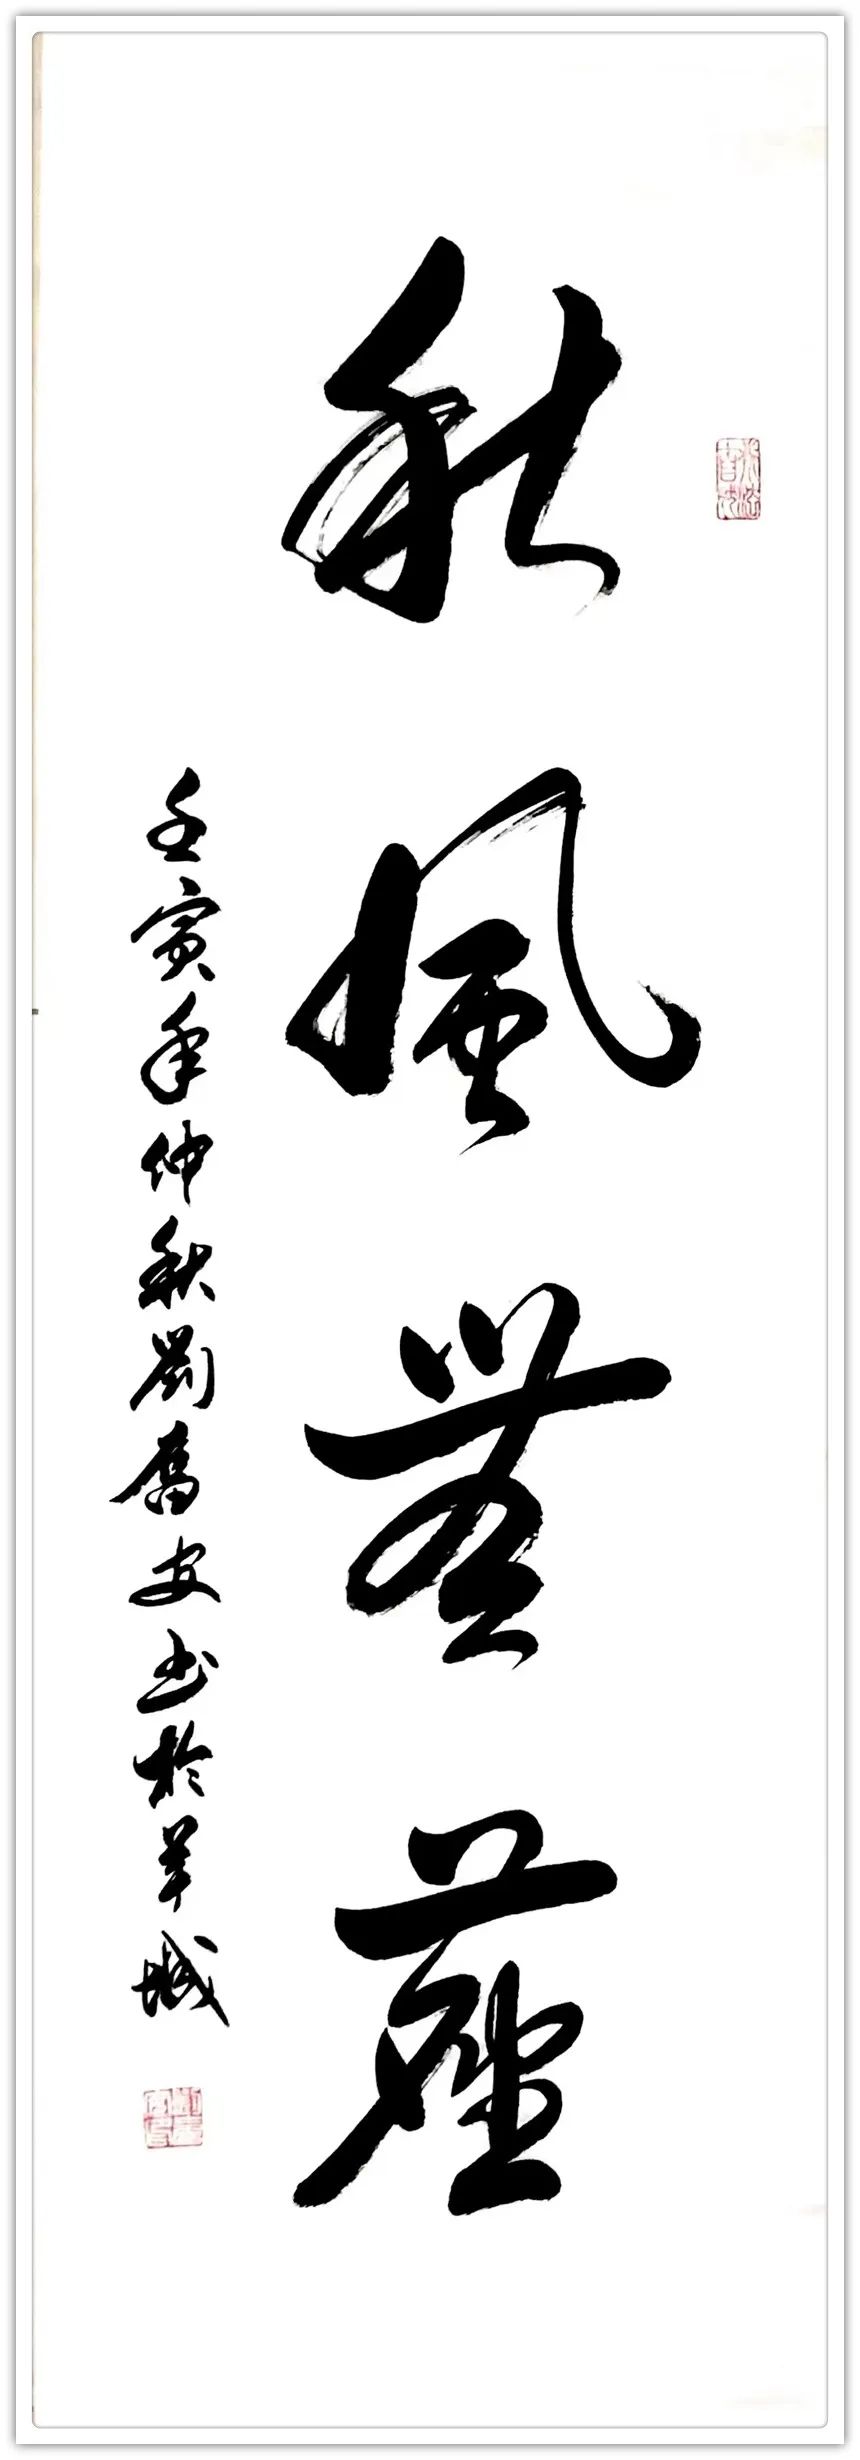 秋風無塵
壬寅年仲秋劉奮安書於羊城